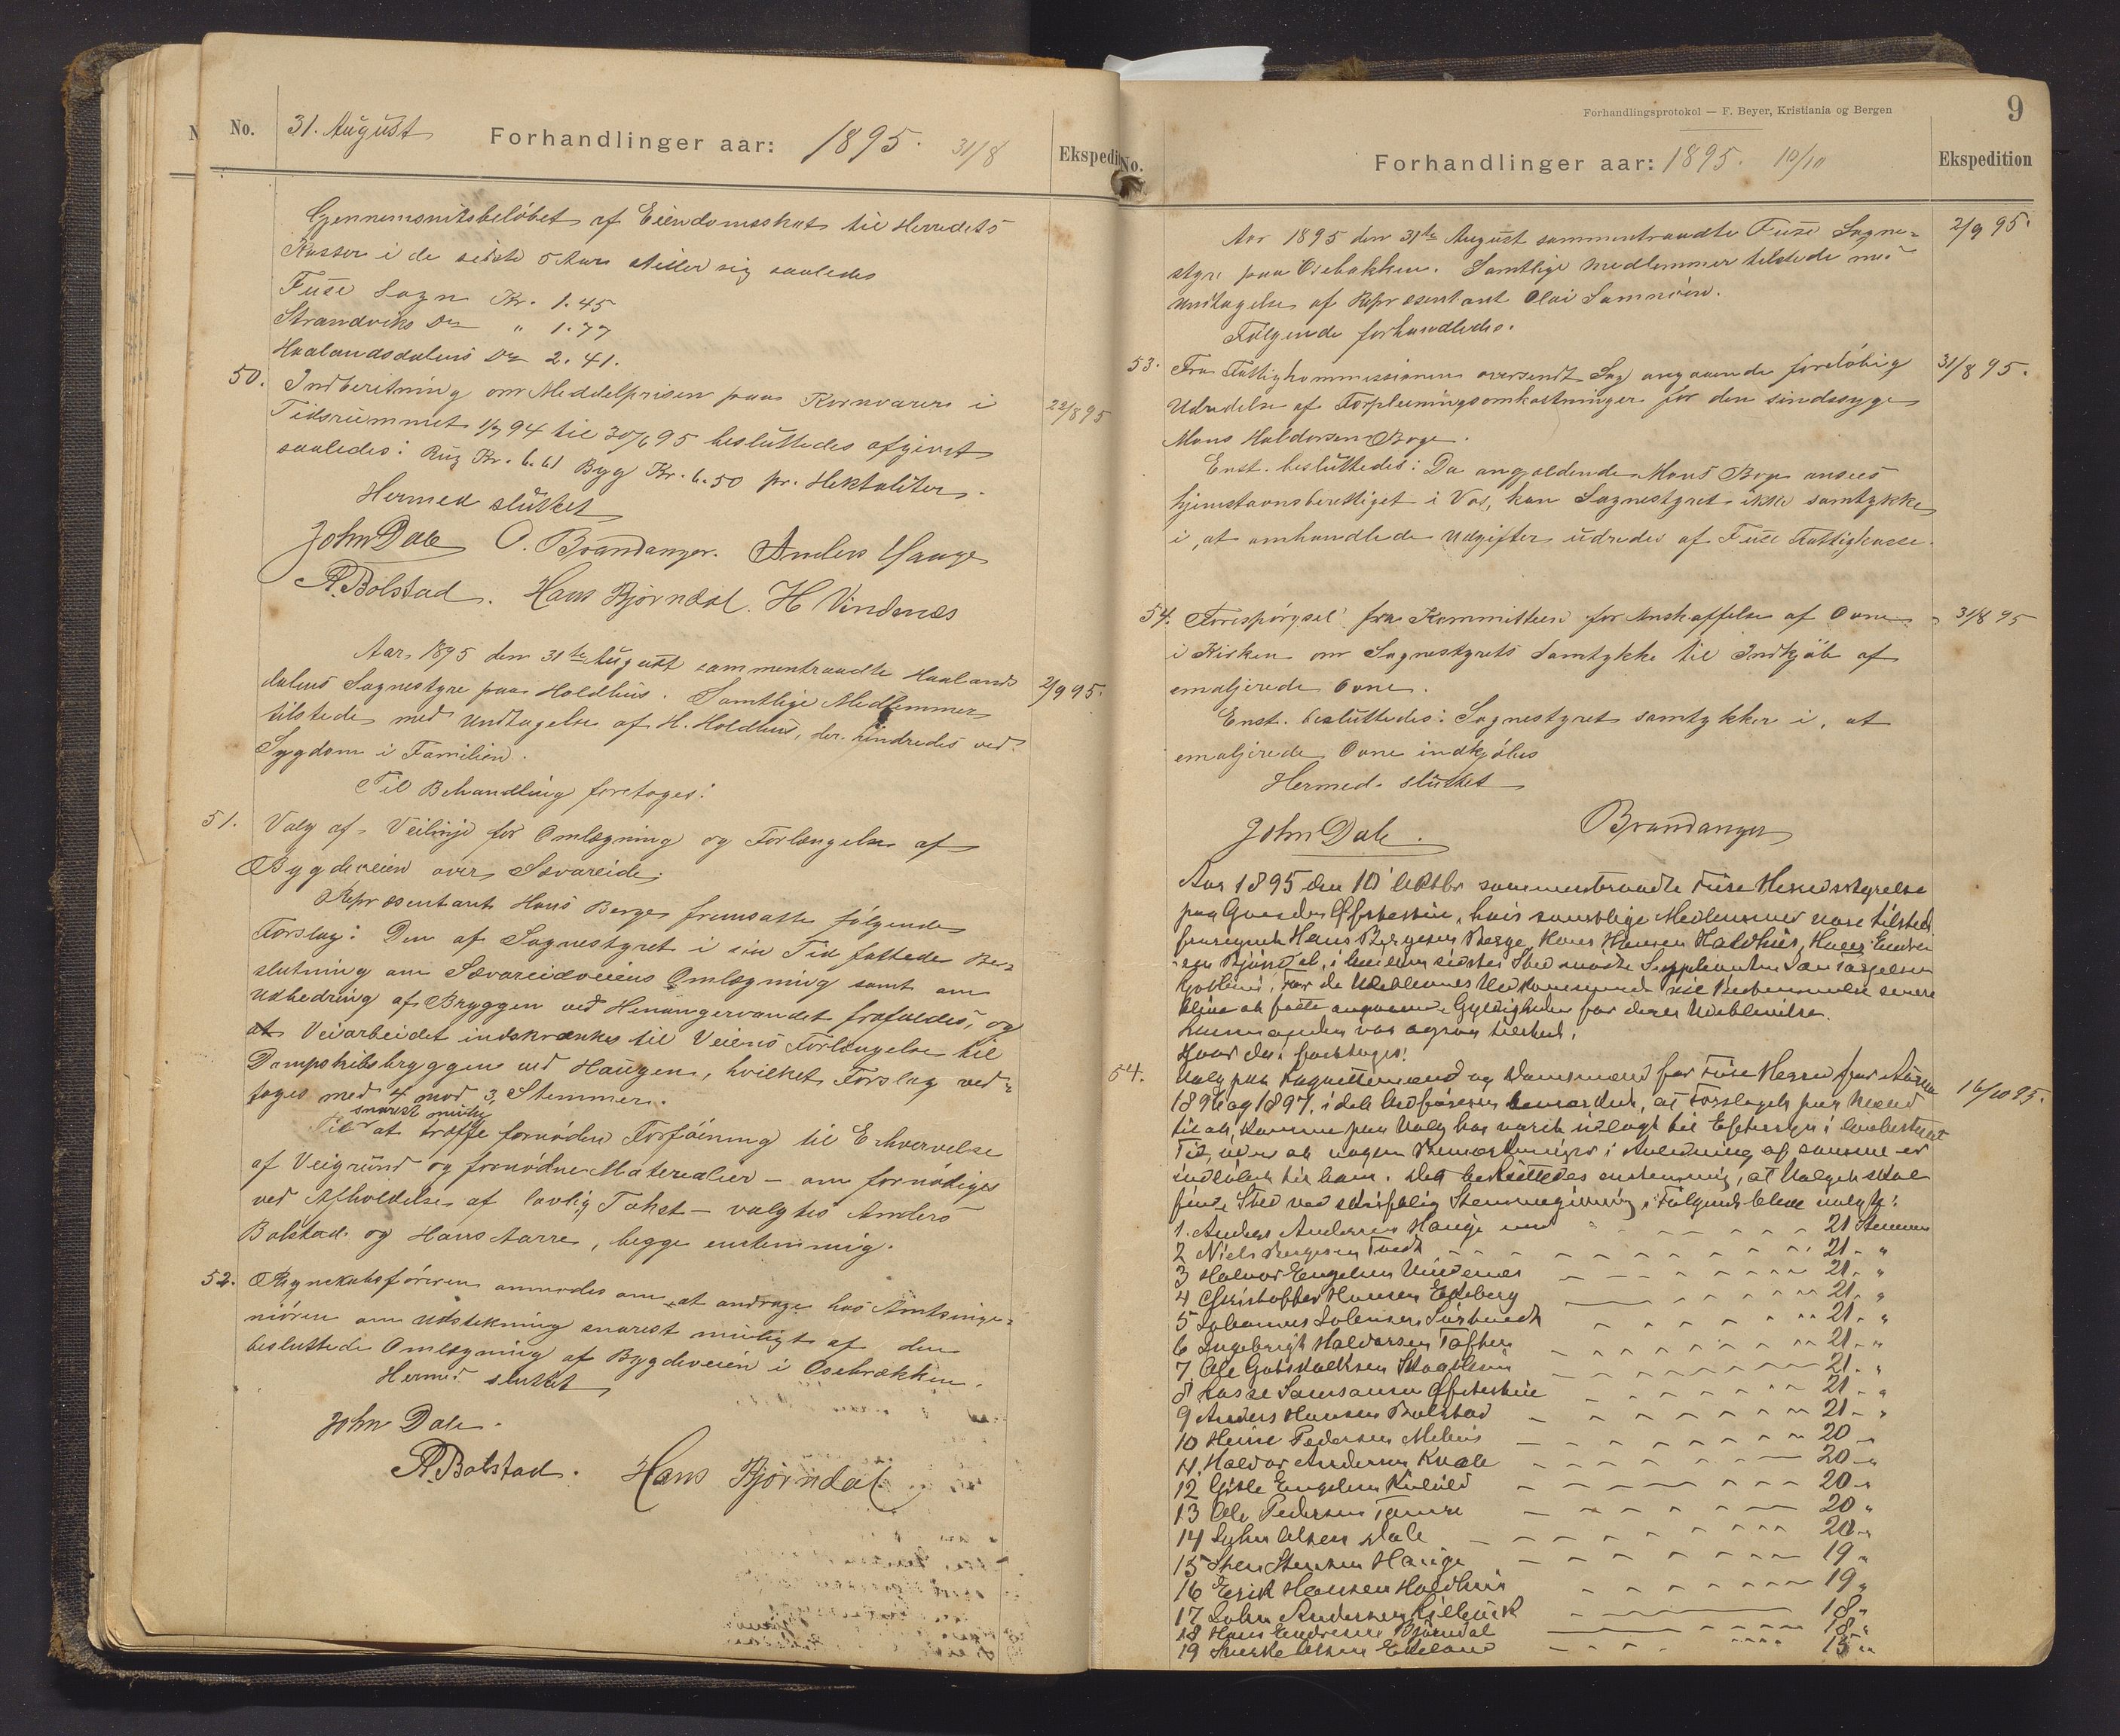 No.
31. August
Forhandlinger aar: 1895. 31/8
Ekspedi
Gjennemsnitsbeløbet af Eiendomsskat til Herredets
Kasser i de sidste 5 Aar stiller sig saaledes
Fuse Sogn Kr. 1.45
Strandviks Do " 1.77
Haalandsdalens Do 2.41.
50. Indberetning om Middelprisen paa Kornvarer i
22/8 95
Tidsrummet 1/7 94 til 30/6 95 besluttedes afgivet
saaledes: Rug Kr. 6.61 Byg Kr. 6.50 pr. Hektoliter.
Hermed sluttet
John Dale O. Brandanger. Anders Hauge
A. Bolstad. Hans Bjørndal. H Vindenes
Aar 1895 den 31te August sammentraadte Haalands
2/9 95.
dalens Sognestyre paa Holdhus. Samtlige Medlemmer
tilstede med Undtagelse af H. Holdhus, der hindredes ved
Sygdom i Familien.
Til Behandling foretoges:
51. Valg af Veilinje for Omlægning og Forlængelse af
Bygdeveien over Sævareide.
Repræsentant Hans Berge fremsatte følgende
Forslag: Den af Sognestyret i sin Tid fattede Be-
slutning om Sævareidveiens Omlægning samt om
Udbedring af Bryggen ved Henangervandet frafaldes, og
at Veiarbeidet indskrænkes til Veiens Forlængelse til
Dampskibsbryggen ved Haugen, hvilket Forslag ved-
toges med 4 mod 3 Stemmer.
snarest mulig
Til at træffe fornøden Forføining til Erhvervelse
af Veigrund og fornødne Materialier – om fornødiges
ved Afholdelse af lovlig Takst – valgtes Anders
Bolstad og Hans Aarre, begge enstemmig.
52. Regnskabsføreren anmodes om at andrage hos Amtsinge-
niøren om Udstikning snarest muligt af den
besluttede Omlægning af Bygdeveien i Osebrækken.
Hermed sluttet
John Dale.
A. Bolstad. Hans Bjørndal
Forhandlingsprotokol — F. Beyer, Kristiania og Bergen
9
No.
Forhandlinger aar: 1895. 10/10
Ekspedition
Aar 1895 den 31te August sammentraadte Fuse Sogne-
2/9 95.
styre paa Osebakken. Samtlige Medlemmer tilstede med
Undtagelse af Repræsentant Olai Samnøen.
Følgende forhandledes.
53. Fra Fattigkommissionen oversendt Sag angaaende foreløbig
31/8 95.
Udredelse af Forpleiningsomkostninger for den sindssyge
Mons Haldorsen Boge.
Enst. besluttedes: Da angjeldende Mons Boge ansees
hjemstavnsberettiget i Vos, kan Sognestyret ikke samtykke
i, at omhandlede Udgifter udredes af Fuse Fattigkasse.
54. Forespørgsel fra Kommitteen for Anskaffelse af Ovne
31/8 95
i Kirken om Sognestyrets Samtykke til Indkjøb af
emaljerede Ovne.
Enst. besluttedes: Sognestyret samtykker i, at
emaljerede Ovne indkjøbes
Hermed sluttet
John Dale. Brandanger
Aar 1895 den 10 Oktbr sammentraadte Fuse Herredsstyrelse
paa Gaarden Øfstestue, hvis samtlige Medlemmer vare tilsted
fraregnet Hans Børgesen Berge, Hans Hansen Holdhus, Hans Endre
sen Bjørndal, i hvilken sidstes Sted mødte Supplianten
For de Udeblevnes Vedkommende vil senere
blive at fatte angaaende Gyldigheden for deres Udeblivelse.
Lensmanden var ogsaa tilsted.
Hvor da foretoges:
54. Valg paa Lagrettemænd og Domsmænd for Fuse Herred for Aarene
16/10 95.
1896 og 1897, i det bemærkes, at Forslaget paa Mænd
til at komme paa Valg har været udlagt til Eftersyn i lovbestemt
Tid, uden at nogen Bemærkninger i Anledning af samme er
indløbet til ham. Det besluttedes enstemmig, at Valget skal
finde Sted ved skriftlig Stemmegivning. Følgende bleve valgt:
1. Anders Andersen Hauge med 21 Stemmer
2 Niels Tveit 21 - "
3 Halvor Engelsen Vindenes 21 - "
4 Christoffer Hansen Eikeberg 21 - "
5 Johannes Johnsen 21 - "
6 Ingebrigt Haldorsen Tofte 21 - "
7. Ole Gotskalksen Skogseid 21 - "
8 Lasse Samsonsen Øfstestue 21 - "
9 Anders Hansen Bolstad 21 - "
10 Heine Pedersen Melhus 20 -
11. Haldor Andersen Kvale 20 - "
12 Gitle Engelsen 20 -
13 Ole Pedersen 20 "
14 John Olsen Dale 20 -
15 Sten Stensen Hauge 19 "
16 Erik Hansen Holdhus 19 "
17 John Andersen Lilletvedt 18 "
18 Hans Endresen Bjørndal 18 "
19 Olsen Eikeland 15 "